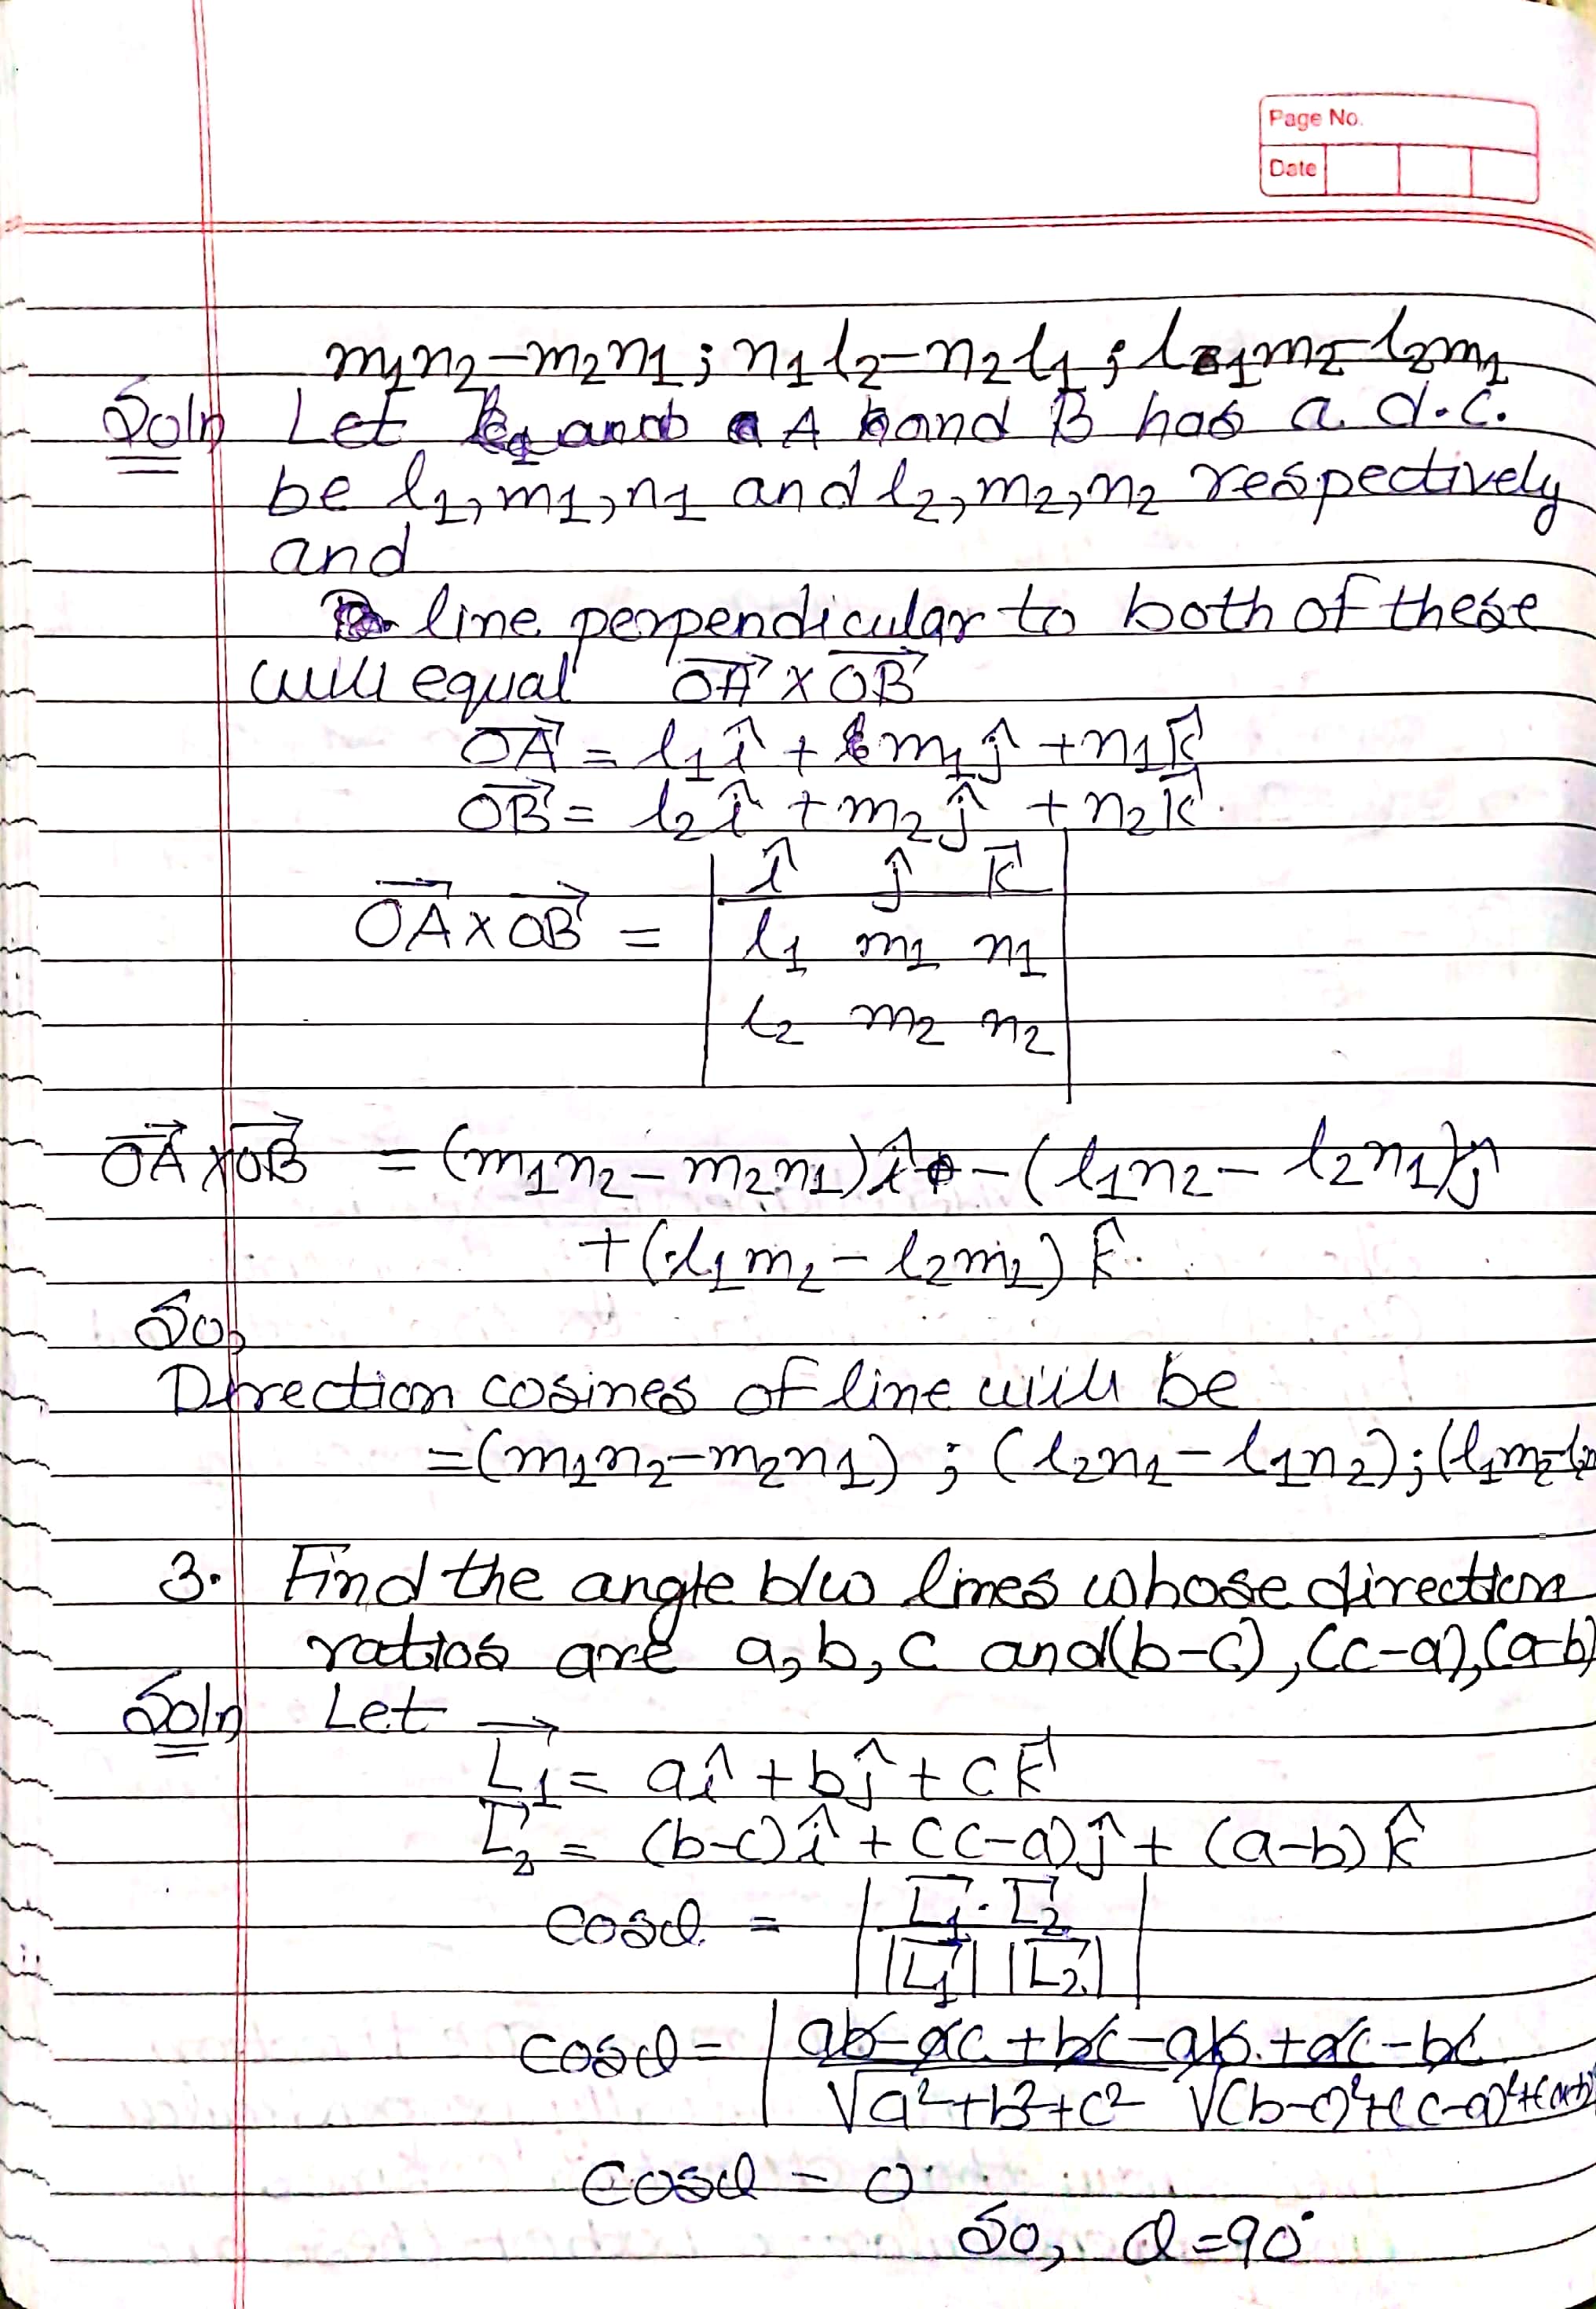 Page No.
Date
m₁n₂-m₂n₁ ; n₁l₂-n₂l₁ ; l₁m₂-l₂m₁
Soln Let A and B has a d.c.
be l₁, m₁, n₁ and l₂, m₂, n₂ respectively
and
line perpendicular to both of these
will equal OA⃗ × OB⃗
OA⃗ = l₁î + m₁ĵ + n₁k⃗
OB⃗ = l₂î + m₂ĵ + n₂k⃗.
OA⃗ × OB⃗ = | î ĵ k⃗ |
| l₁ m₁ n₁ |
| l₂ m₂ n₂ |
OA⃗ × OB⃗ = (m₁n₂ - m₂n₁)î - (l₁n₂ - l₂n₁)ĵ
+ (l₁m₂ - l₂m₁) k̂.
So,
Direction cosines of line will be
= (m₁n₂-m₂n₁) ; (l₂n₁ - l₁n₂) ; (l₁m₂-l₂
3. Find the angle b/w lines whose direction
ratios are a, b, c and (b-c), (c-a), (a-b)
Soln Let
L₁⃗ = aî + bĵ + ck⃗
L₂⃗ = (b-c)î + (c-a)ĵ + (a-b)k̂
cosθ = | L₁⃗ . L₂⃗ / |L₁⃗| |L₂⃗| |
cosθ = | ab-ac+bc-ab+ac-bc
√a²+b²+c² √(b-c)²+(c-a)²+(a-b)²
cosθ = 0
So, θ = 90°